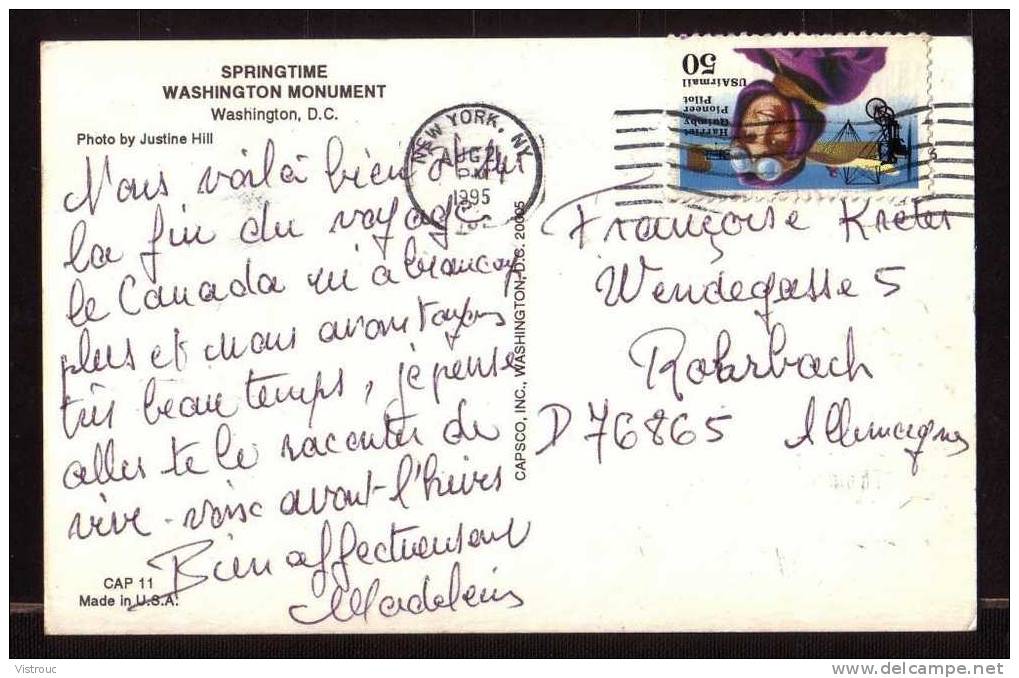 SPRINGTIME
WASHINGTON MONUMENT
Washington, D.C.
Photo by Justine Hill
Nous voilà bientôt sur
la fin du voyage
le Canada m'a beaucoup
plu et nous avons toujours
très beau temps, je pense
aller te le raconter de
vive-voix avant l'hiver
Bien affectueusement
Madeleine
CAP 11
Made in U.S.A.
CAPSCO, INC., WASHINGTON, D.C. 20005
NEW YORK, NY
AUG
PM
1995
50
USAirmail
Harriet
Quimby
Pioneer
Pilot
Françoise Kreter
Wendegasse 5
Rohrbach
D 76865 Allemagne
Vistrouc
delcampe.net